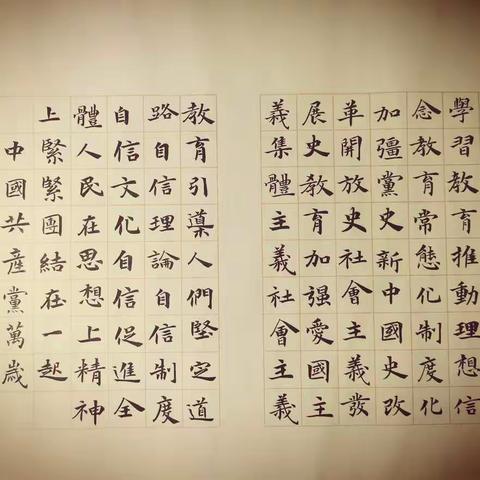 學習教育推動理想信
念教育常態化制度化
加彊黨史新中國史改
革開放史社會主義發
展史教育加强愛國主
義集體主義社會主義
教育引導人們堅定道
路自信理論自信制度
自信文化自信促進全
體人民在思想上精神
上緊緊團結在一起
中國共產黨萬歲